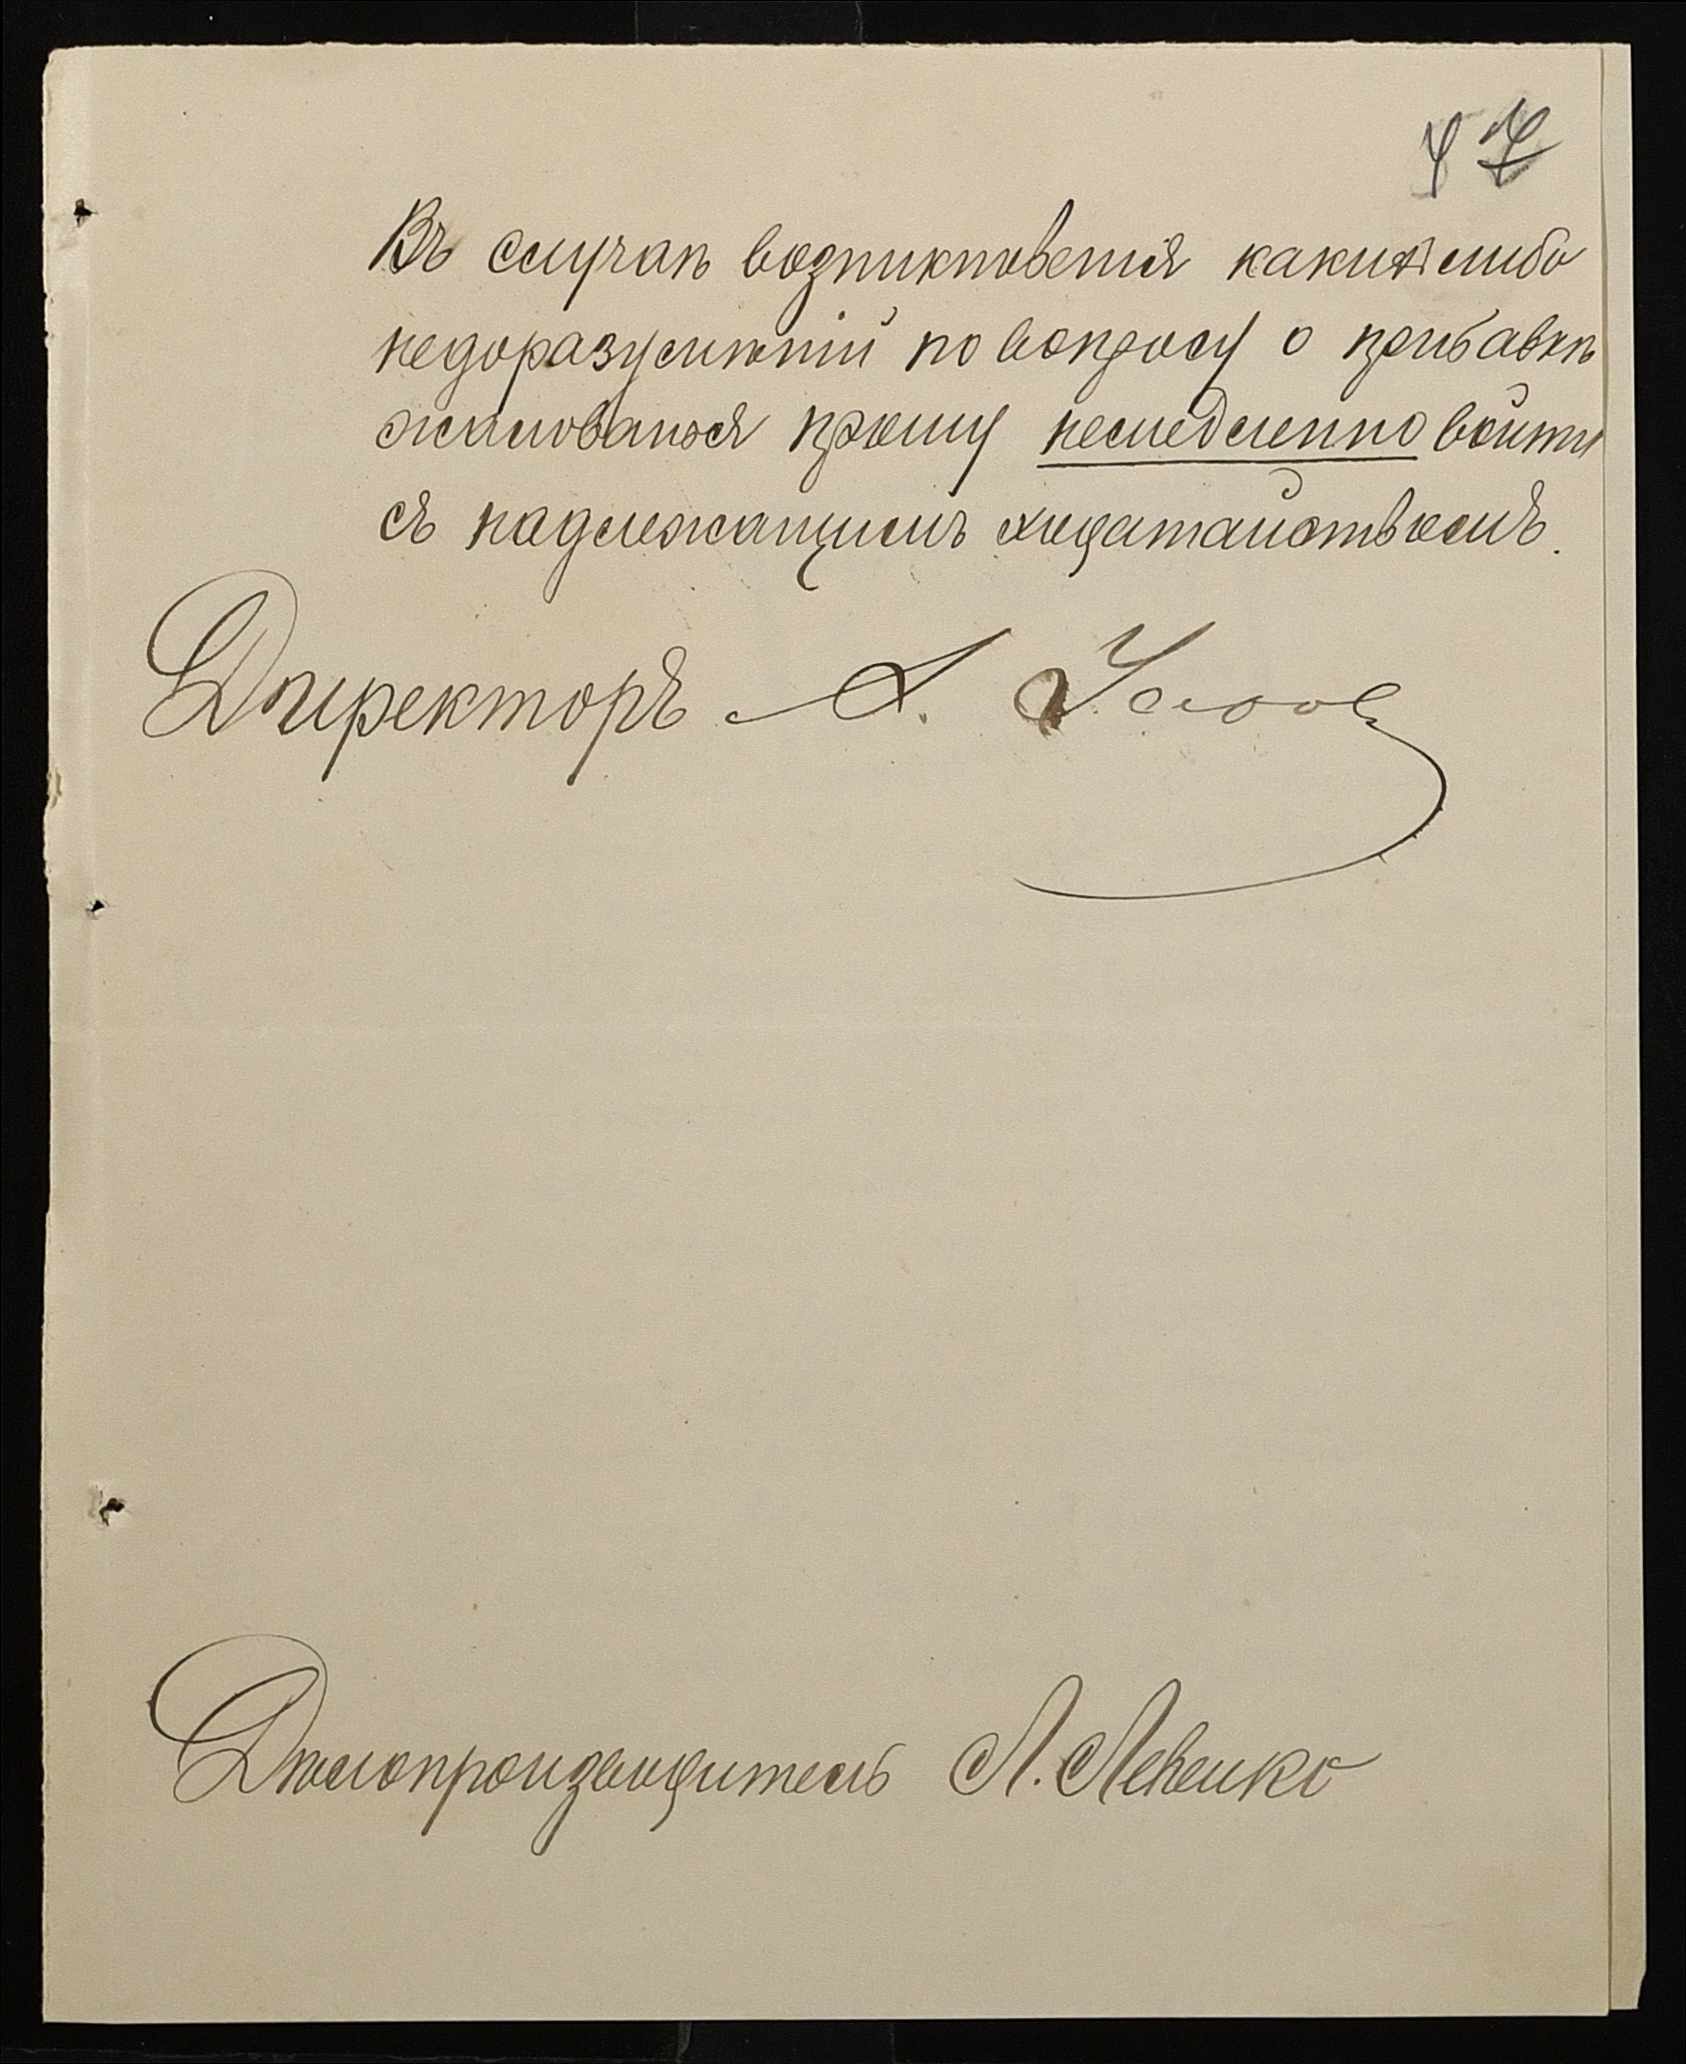 47
Въ случаѣ возникновенія какихъ либо
недоразумѣній по вопросу о прибавкѣ
жалованья прошу немедленно войти
съ надлежащимъ ходатайствомъ.
Директоръ А.
Дѣлопроизводитель Л. Левенко